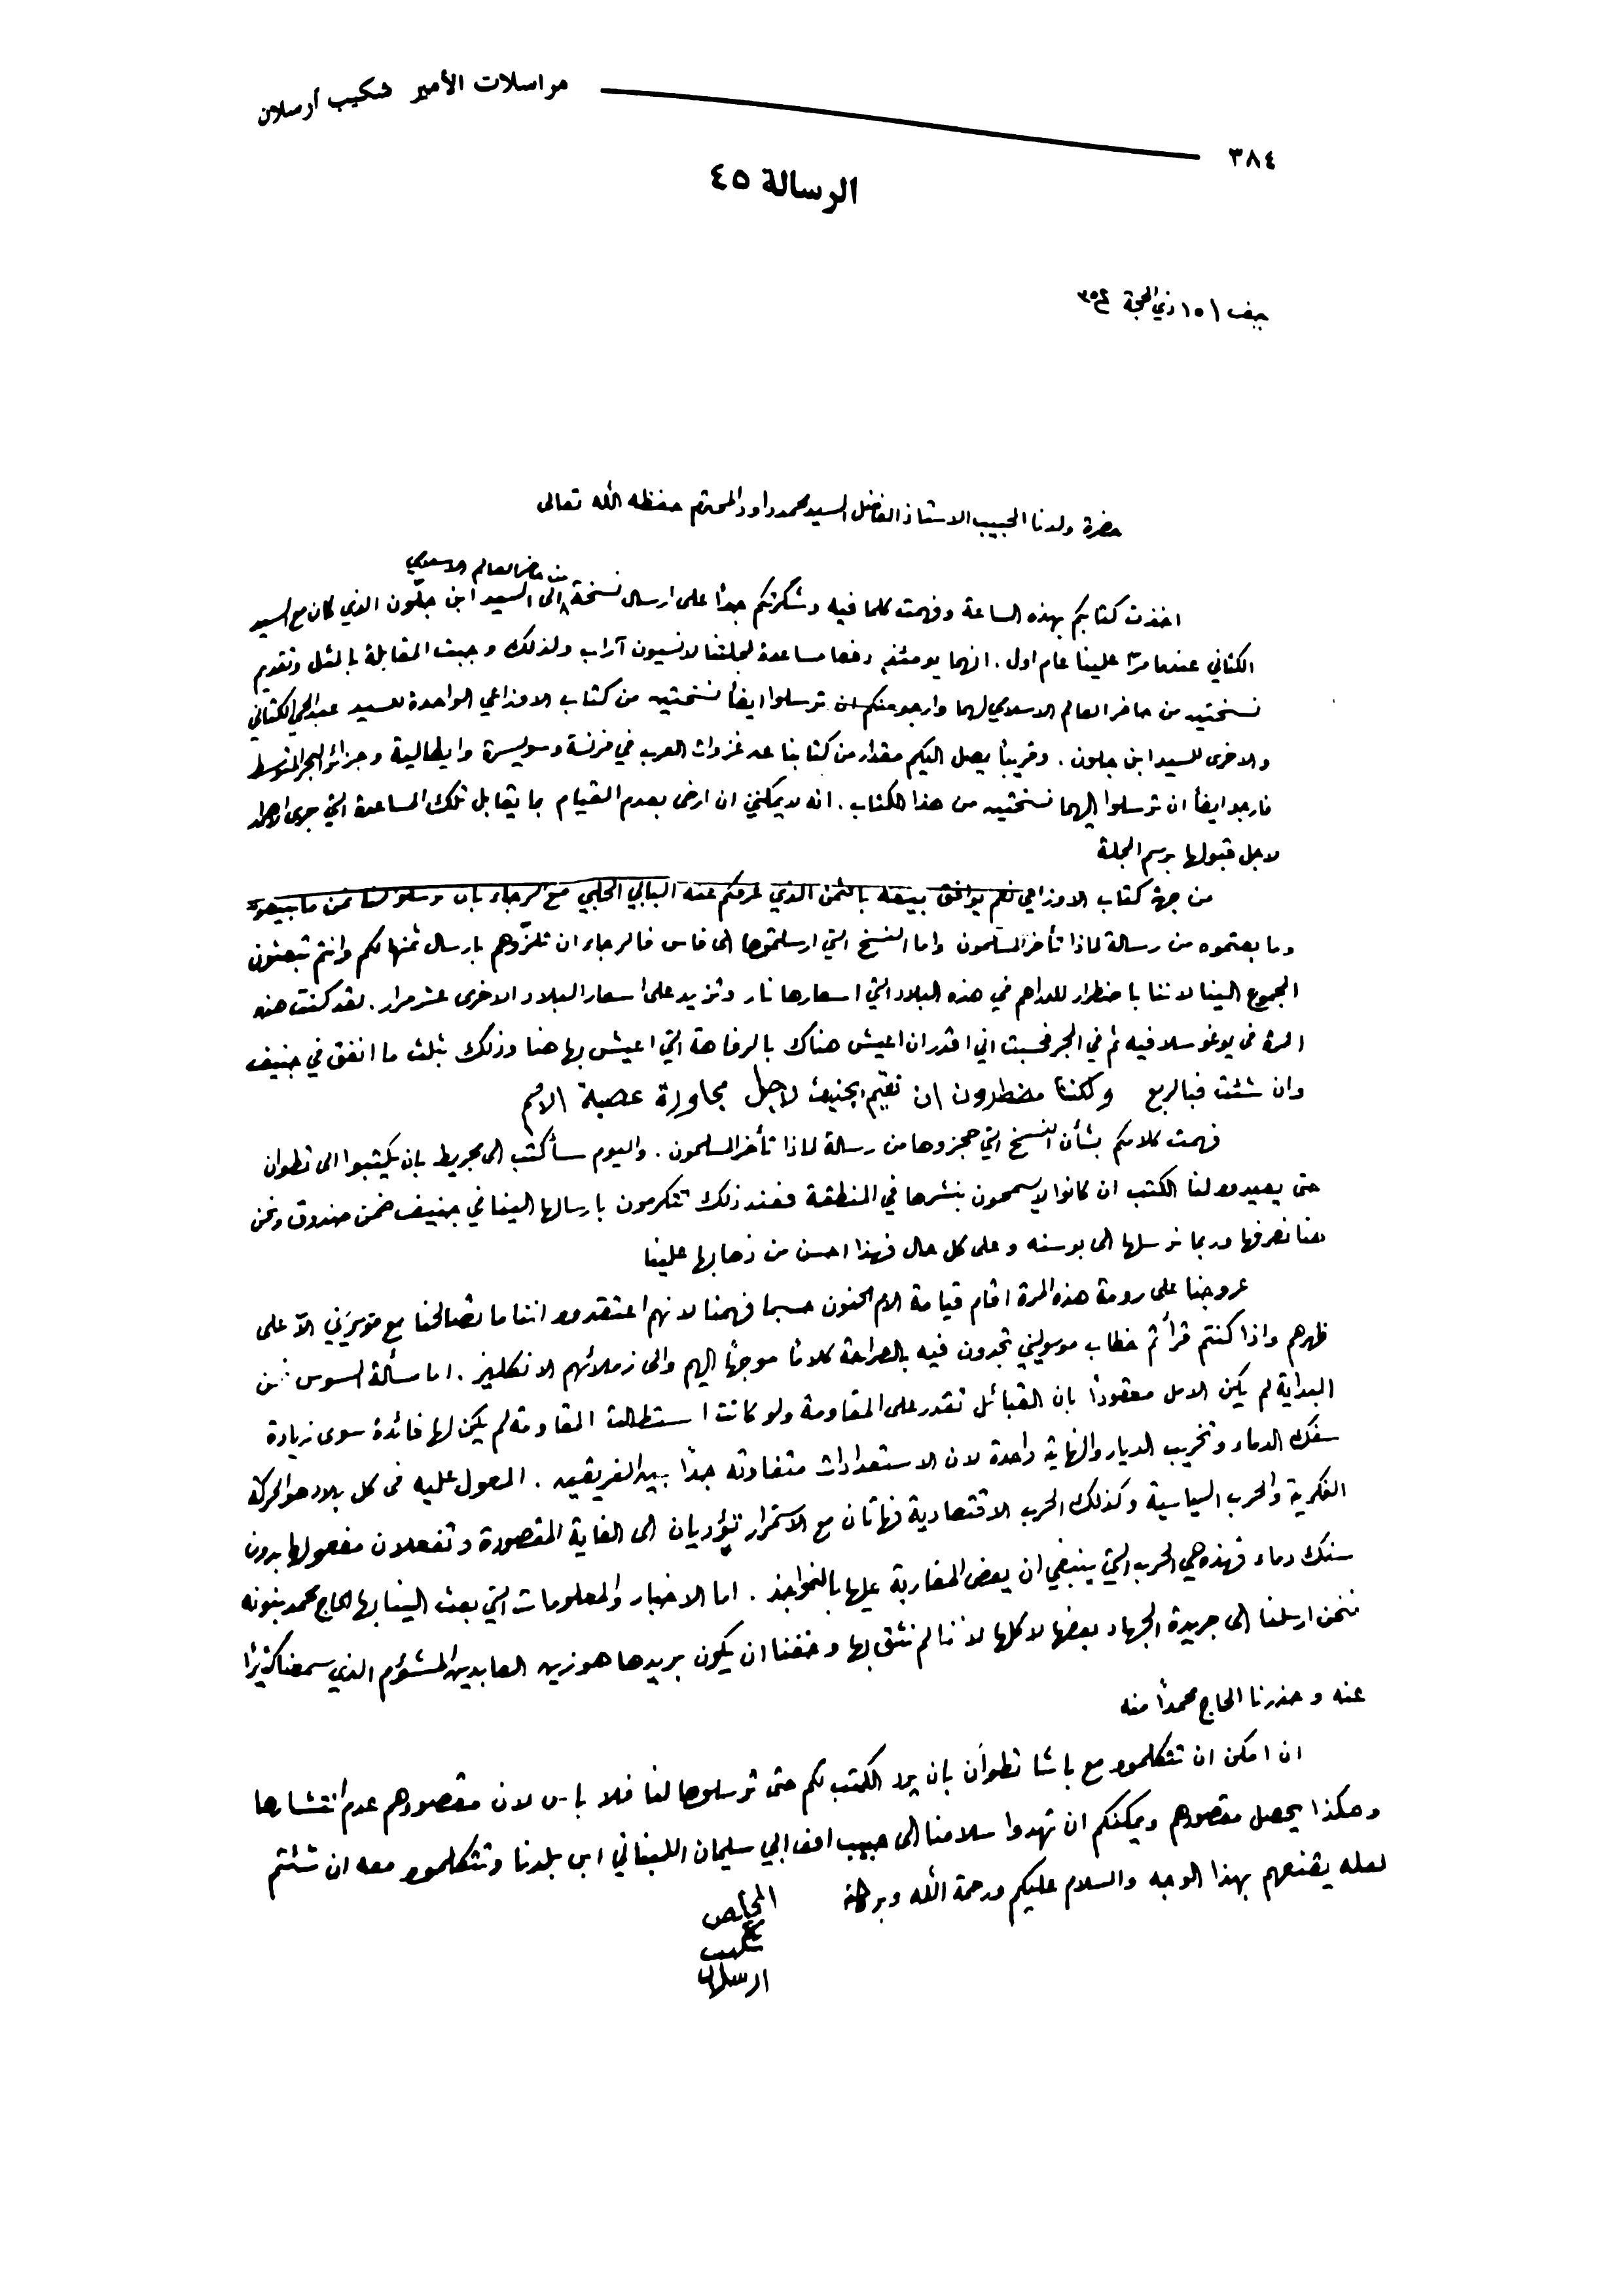 مراسلات الأمير شكيب أرسلان
٣٨٤
الرسالة ٤٥
جنيف ١٥ ذي الحجة ٣٥٢
حضرة ولدنا الحبيب الاستاذ الفاضل السيد محمد داود المحترم حفظه الله تعالى
من حاضر العالم الاسلامي
اخذت كتابكم بهذه الساعة وفهمت كلما فيه وشكرتكم جداً على ارسال نسخة الى السيد ابن جلّون الذي كان مع السيد
الكتاني عندما مرّا علينا عام اول . انهما يومئذٍ دفعا مساعدة لمجلتنا لاناسيون آراب ولذلك وجبت المقابلة بالمثل وتقديم
نسختين من حاضر العالم الاسلامي لهما وارجو منكم ان ترسلوا ايضاً نسختين من كتاب الاوزاعي الواحدة للسيد عبد الحي الكتاني
والاخرى للسيد ابن جلون . وقريباً يصل اليكم مقدار من كتابنا عن غزوات العرب في فرنسة وسويسرة وايطالية وجزائر البحر المتوسط
فارجو ايضاً ان ترسلوا اليهما نسختين من هذا الكتاب . انه لا يمكنني ان ارضى بعدم القيام بما يقابل تلك المساعدة التي جرى
لاجل قبولها برسم المجلة
من جهة كتاب الاوزاعي نعم يوافق بيعه بالثمن الذي عرفكم عنه البابي الحلبي مع الرجاء بان ترسلوا لنا ثمن ما بيعوه
وما بعتموه من رسالة لماذا تأخر المسلمون واما النسخ التي ارسلتموها الى فاس فالرجاء ان تلزّوهم بارسال ثمنها لكم وانتم تبعثون
المجموع الينا لاننا باضطرار للدراهم في هذه البلاد التي اسعارها نار وتزيد على اسعار البلاد الاخرى عشر مرار . لقد كنت هذه
المرة في يوغوسلافيه ثم في المجر فحسبت اني اقدر ان اعيش هناك بالرفاهة التي اعيش بها هنا وذلك بثلث ما انفق في جنيف
وان شئت فبالربع ولكننا مضطرون ان نقيم بجنيف لاجل مجاورة عصبة الامم
فهمت كلامكم بشأن النسخ التي حجزوها من رسالة لماذا تأخر المسلمون . واليوم سأكتب الى مجريط بان يكتبوا الى تطوان
حتى يعيدوا لنا الكتب ان كانوا لا يسمحون بنشرها في المنطقة فعند ذلك تتكرمون بارسالها الينا في جنيف ضمن صندوق ونحن
هنا نصرفها وربما نرسلها الى بوسنه وعلى كل حال فهذا احسن من ذهابها علينا
عروجنا على رومة هذه المرة اقام قيامة الام الحنون حسبما فهمنا لانهم اعتقدوا اننا ما تصالحنا مع موسوليني الّا على
ظهرهم واذا كنتم قرأتم خطاب موسوليني تجدون فيه بالصراحة كلاماً موجهاً اليهم والى زملائهم الانكليز . اما مسألة السوس فمن
البداية لم يكن الامل معقوداً بان القبائل تقدر على المقاومة ولو كانت استطالت المقاومة لم يكن لها فائدة سوى زيادة
سفك الدماء وتخريب الديار والنهاية واحدة لان الاستعدادات متفاوته جداً بين الفريقين . المعول عليه في كل بلاد هو الحركة
الفكرية والحرب السياسية وكذلك الحرب الاقتصادية فهاتان مع الاستمرار تؤديان الى الغاية المقصودة وتفعلان مفعولها بدون
سفك دماء فهذه هي الحرب التي ينبغي ان يعض المغاربة عليها بالنواجذ . اما الاخبار والمعلومات التي بعث الينا بها الحاج محمد بنونه
فنحن ارسلنا الى جريدة الجهاد بعضها لا كلها لاننا لم نثق بها وخفنا ان يكون بريدها هو زين العابدين المشؤم الذي سمعنا كثيراً
عنه وحذرنا الحاج محمداً منه
ان امكن ان تتكلموا مع باشا تطوان بان يرد الكتب لكم حتى ترسلوها لنا فلا باس لان مقصودهم عدم انتشارها
وهكذا يحصل مقصودهم ويمكنكم ان تهدوا سلامنا الى حبيب افـ ابي سليمان اللبناني ابن بلدنا وتتكلموا معه ان شئتم
لعله يقنعهم بهذا الوجه والسلام عليكم ورحمة الله وبركاته
المخلص
شكيب
ارسلان